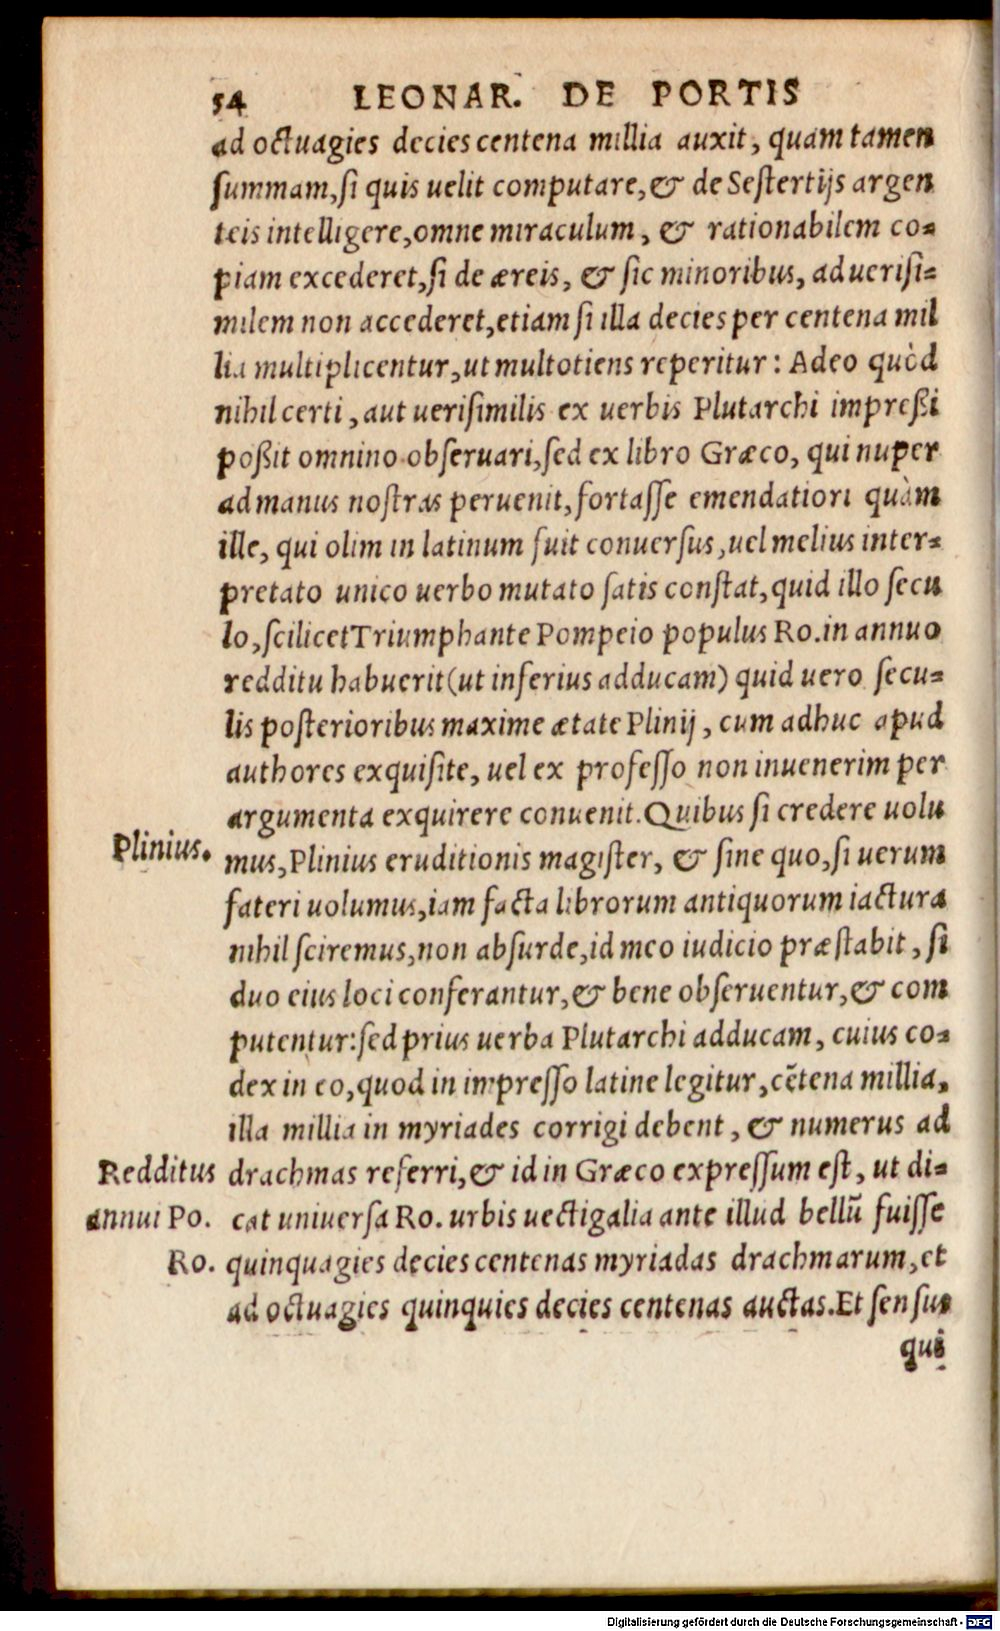 54 LEONAR. DE PORTIS
ad octuagies decies centena millia auxit, quam tamen
summam, si quis uelit computare, & de Sestertijs argen
teis intelligere, omne miraculum, & rationabilem co-
piam excederet, si de æreis, & sic minoribus, ad uerisi-
milem non accederet, etiam si illa decies per centena mil
lia multiplicentur, ut multotiens reperitur: Adeo quòd
nihil certi, aut uerisimilis ex uerbis Plutarchi impreßi
poßit omnino obseruari, sed ex libro Græco, qui nuper
ad manus nostras peruenit, fortasse emendatiori quàm
ille, qui olim in latinum fuit conuersus, uel melius inter-
pretato unico uerbo mutato satis constat, quid illo secu
lo, scilicet Triumphante Pompeio populus Ro. in annuo
redditu habuerit (ut inferius adducam) quid uero secu-
lis posterioribus maxime ætate Plinij, cum adhuc apud
authores exquisite, uel ex professo non inuenerim per
argumenta exquirere conuenit. Quibus si credere uolu
Plinius. mus, Plinius eruditionis magister, & sine quo, si uerum
fateri uolumus, iam facta librorum antiquorum iactura
nihil sciremus, non absurde, id meo iudicio præstabit, si
duo eius loci conferantur, & bene obseruentur, & com
putentur: sed prius uerba Plutarchi adducam, cuius co-
dex in eo, quod in impresso latine legitur, cẽtena millia,
illa millia in myriades corrigi debent, & numerus ad
Redditus drachmas referri, & id in Græco expressum est, ut di-
annui Po. cat uniuersa Ro. urbis uectigalia ante illud bellũ fuisse
Ro. quinquagies decies centenas myriadas drachmarum, et
ad octuagies quinquies decies centenas auctas. Et sensus
qui
Digitalisierung gefördert durch die Deutsche Forschungsgemeinschaft - DFG